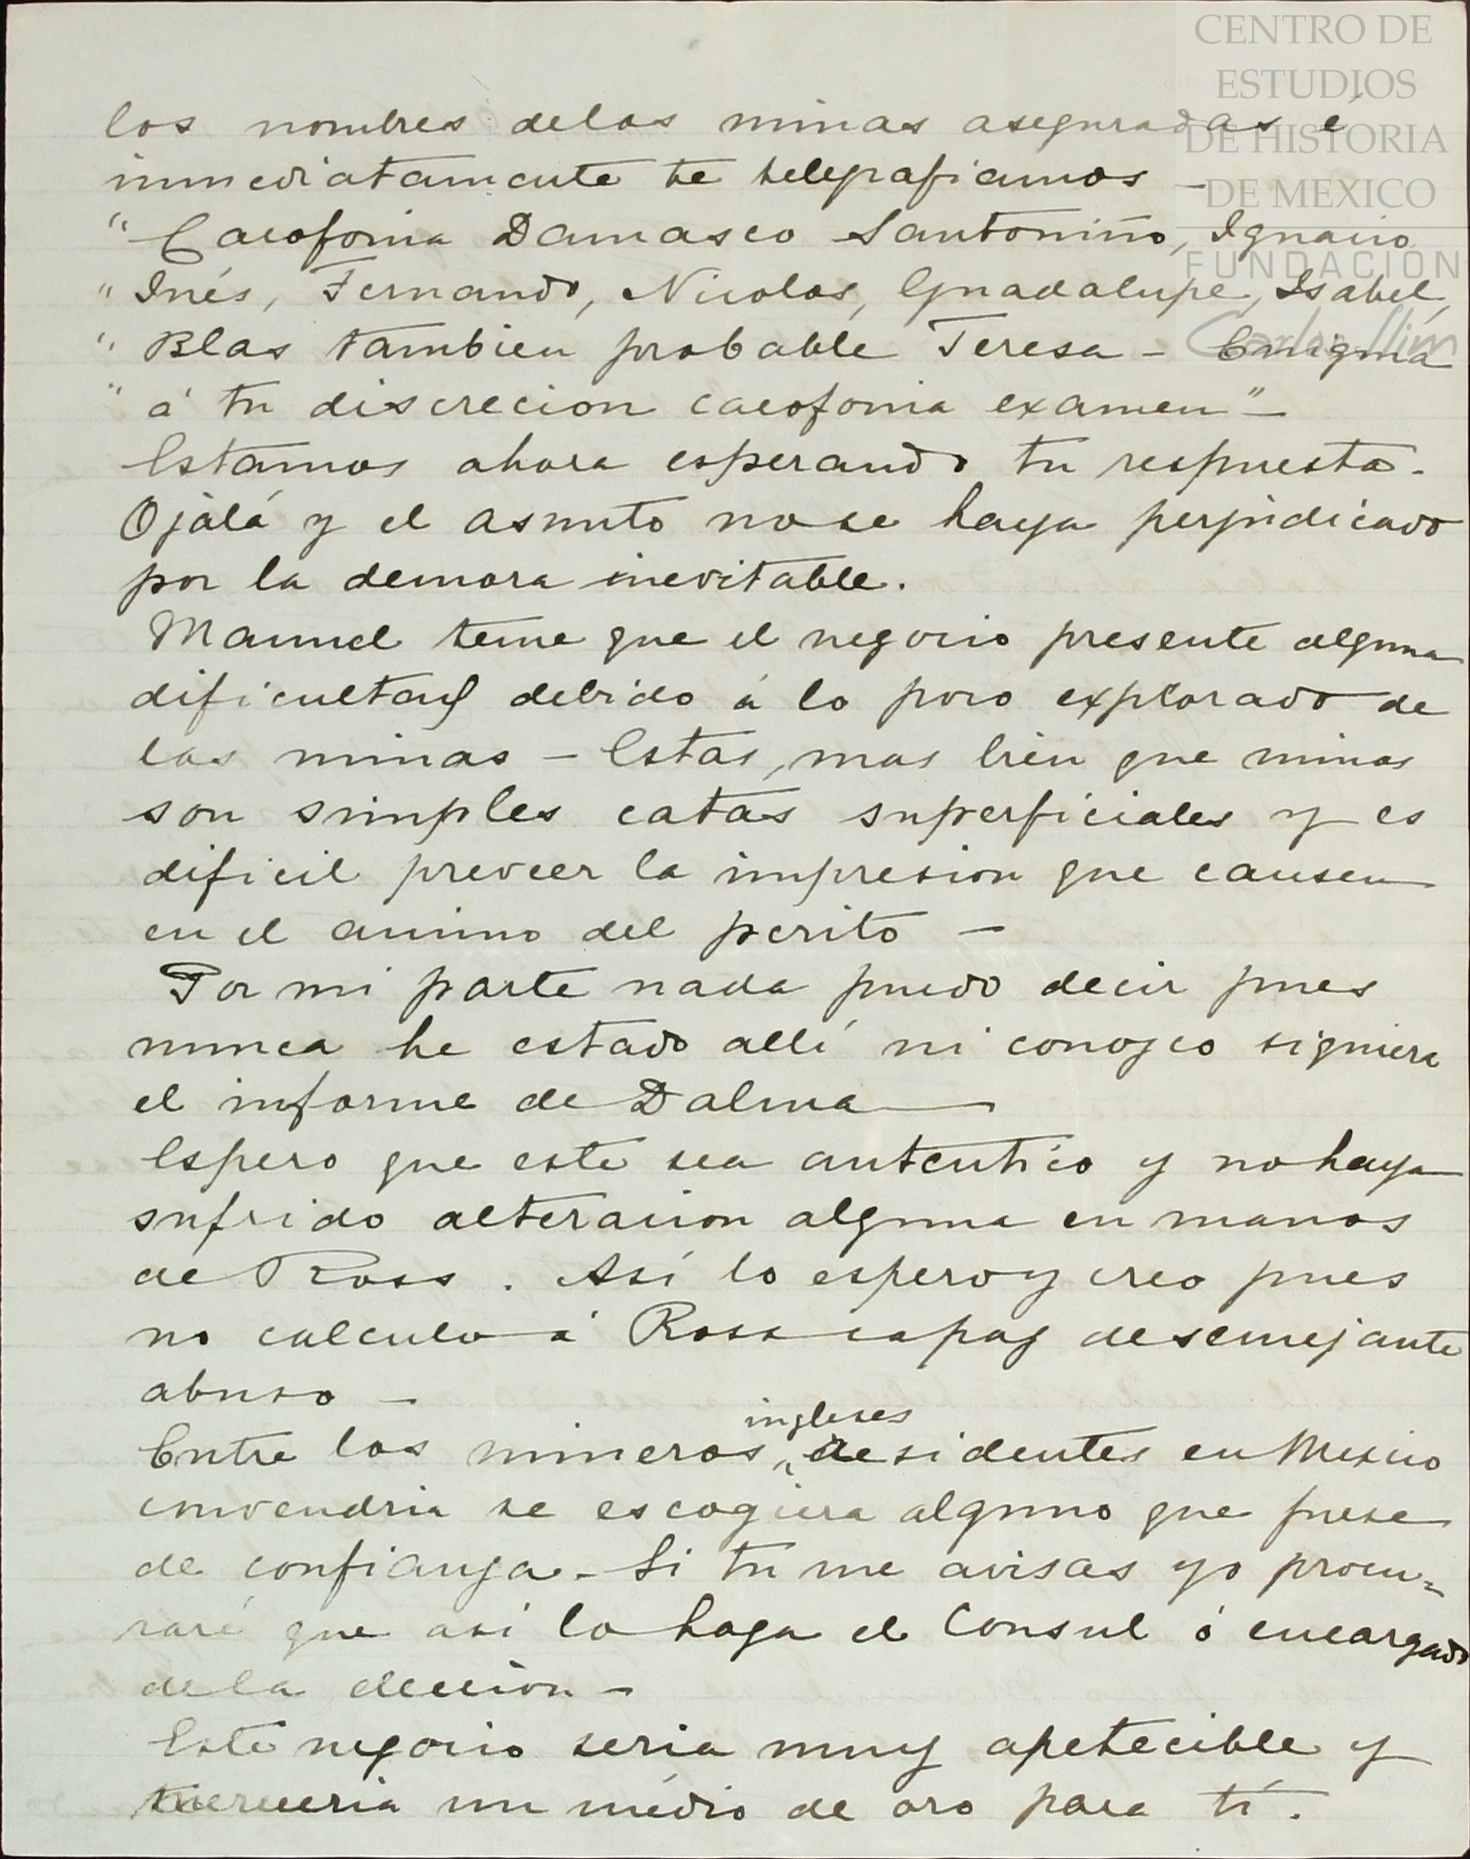 CENTRO DE
ESTUDIOS
DE HISTORIA
DE MEXICO
FUNDACIÓN
Carlos Slim
los nombres delas minas aseguradas é
inmediatamente te telegrafiamos —
" Cacofonia Damasco Santoniño, Ignacio
" Inés, Fernando, Nicolas, Guadalupe, Isabel,
" Blas tambien probable Teresa - Enigma
" á tu discrecion cacofonia examen" —
Estamos ahora esperando tu respuesta.
Ojalá y el asunto no se haya perjudicado
por la demora inevitable.
Manuel teme que el negocio presente alguna
dificultad debido á lo poco explorado de
las minas — Estas, mas bien que minas
son simples catas superficiales y es
dificil preveer la impresion que causen
en el animo del perito —
Por mi parte nada puedo decir pues
nunca he estado allí ni conozco siquiera
el informe de Dalma
Espero que este sea autentico y no haya
sufrido alteracion alguna en manos
de Ross. Así lo espero y creo pues
no calculo á Ross capaz de semejante
abuso —
ingleses
Entre los mineros, residentes en Mexico
convendria se escogiera alguno que fuese
de confianza - Si tu me avisas yo procu=
raré que asi lo haga el Consul ó encargado
de la eleccion —
Este negocio seria muy apetecible y
un médio de oro para tí.